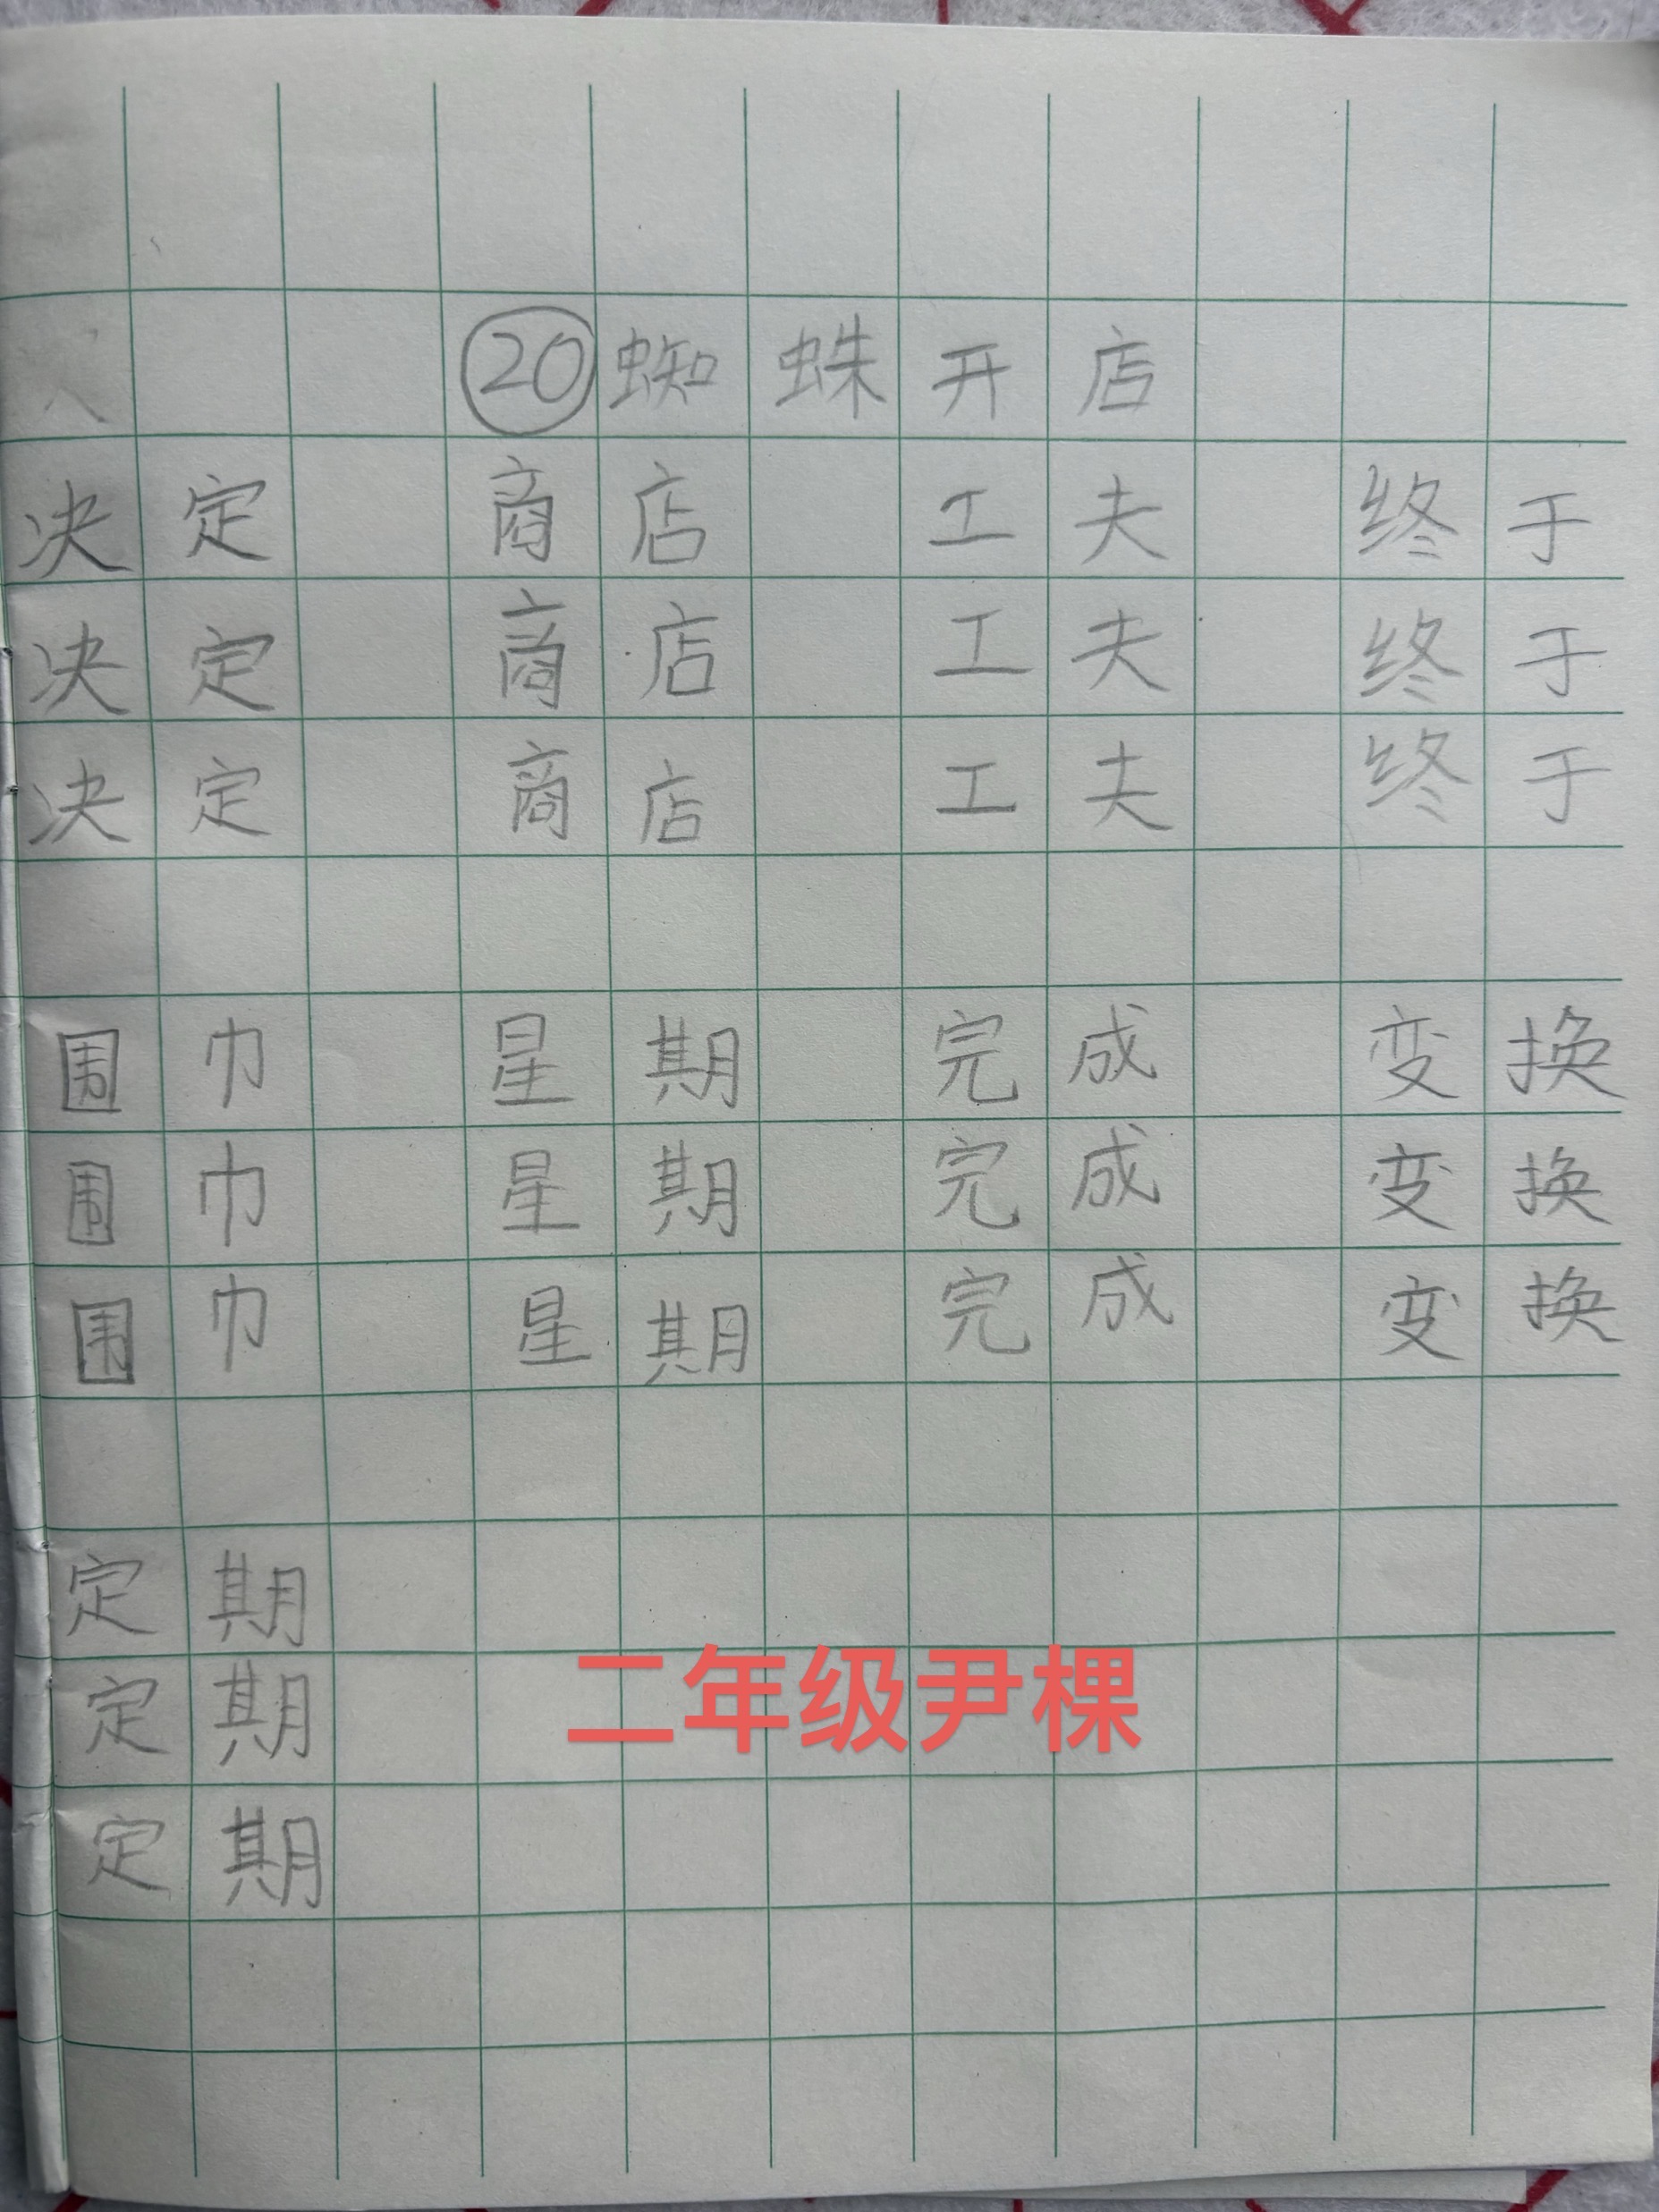 ⑳蜘蛛开店
决定 商店 工夫 终于
决定 商店 工夫 终于
决定 商店 工夫 终于
围巾 星期 完成 变换
围巾 星期 完成 变换
围巾 星期 完成 变换
定期
定期
二年级尹棵
定期